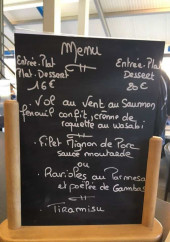 Menu
Entrée-Plat
Plat-Dessert
16€
Entrée-Plat
Dessert
20€
• Vol au Vent au Saumon
fenouil confit, crème de
roquette au wasabi
• Filet Mignon de Porc
sauce moutarde
ou
• Ravioles au Parmesan
et poêlée de Gambas
• Tiramisu